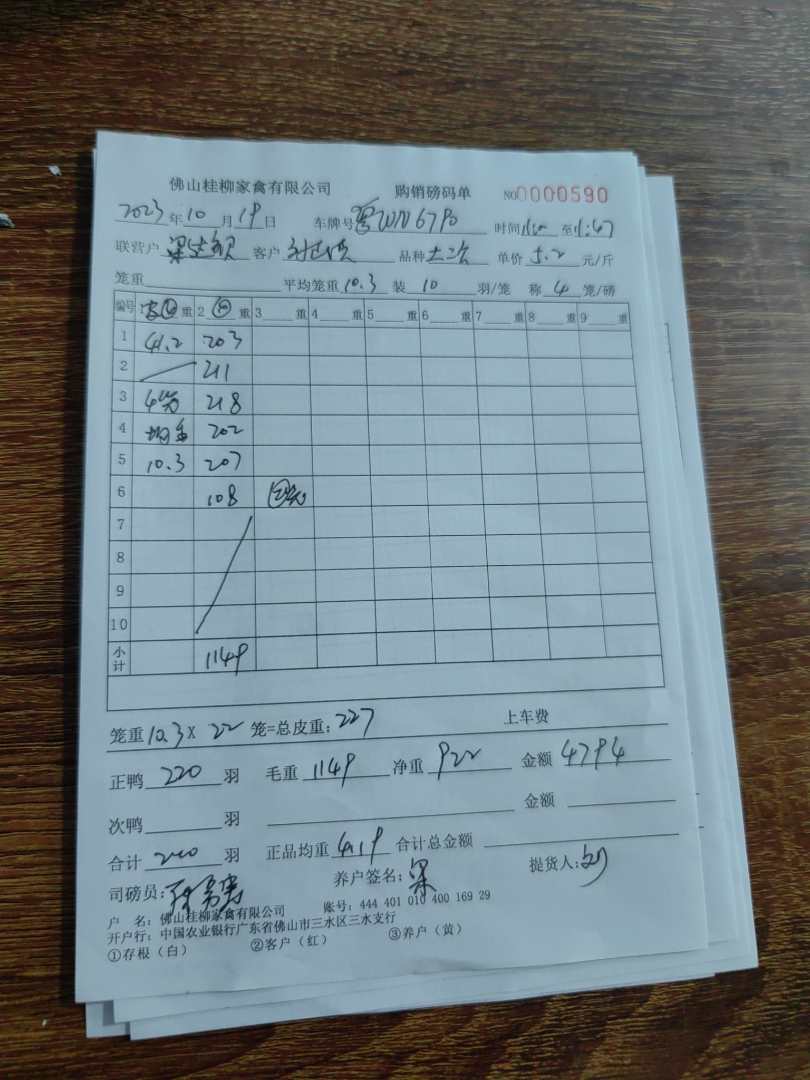 佛山桂柳家禽有限公司 购销磅码单 NO0000590
2023年10月19日 车牌号粤WN67P0 时间 至1:47
联营户 梁 客户 品种 土二次 单价5.2元/斤
笼重 平均笼重10.3 装10羽/笼 称4笼/磅
编号 1 重 2 重 3 重 4 重 5 重 6 重 7 重 8 重 9 重
1 41.2 203
2 211
3 4笼 218
4 均重 202
5 10.3 207
6 108 2笼
7
8
9
10
小计 1149
笼重10.3X22笼=总皮重:227 上车费
正鸭220羽 毛重1149 净重922 金额4794
次鸭 羽 金额
合计220羽 正品均重4.19 合计总金额
司磅员: 养户签名:梁 提货人:刘
户 名:佛山桂柳家禽有限公司 账号:444 401 010 400 169 29
开户行:中国农业银行广东省佛山市三水区三水支行
①存根(白) ②客户(红) ③养户(黄)